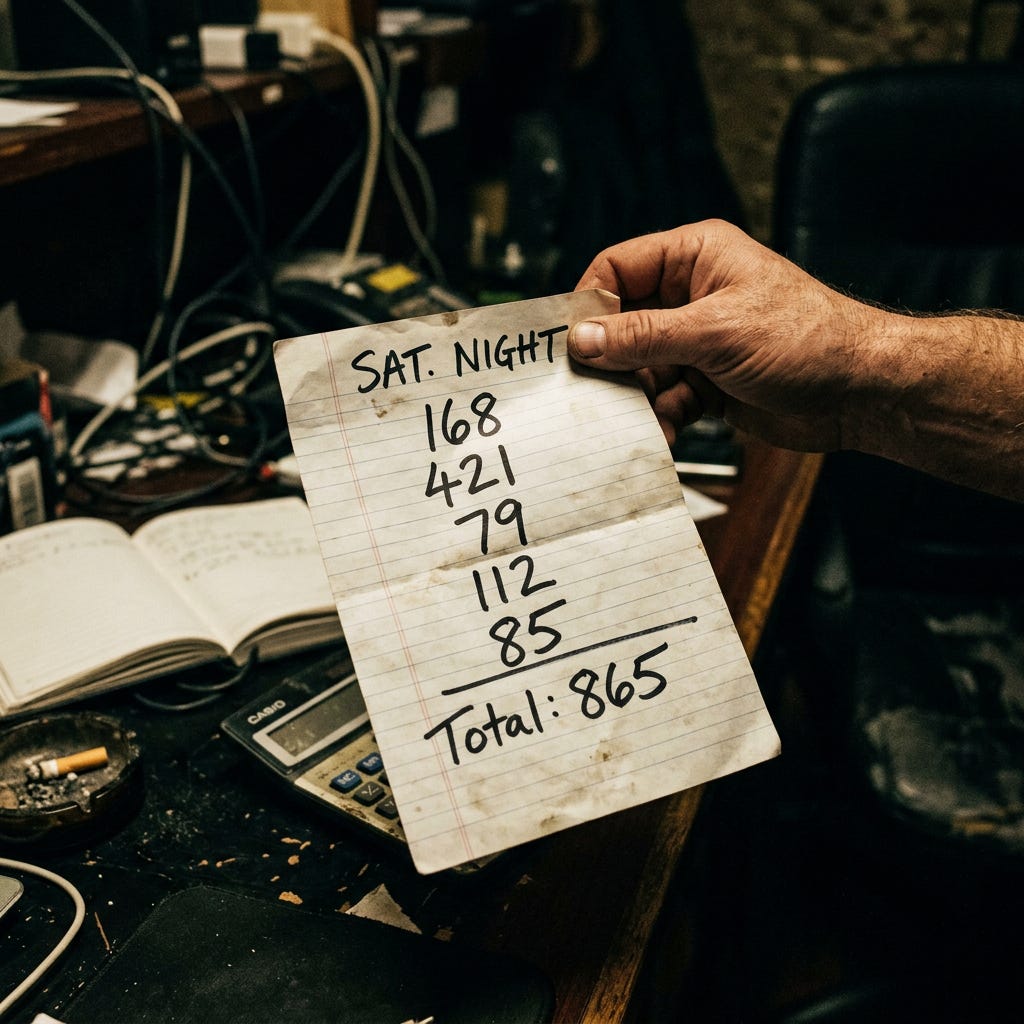 SAT. NIGHT
168
421
79
112
85
Total: 865
CASIO